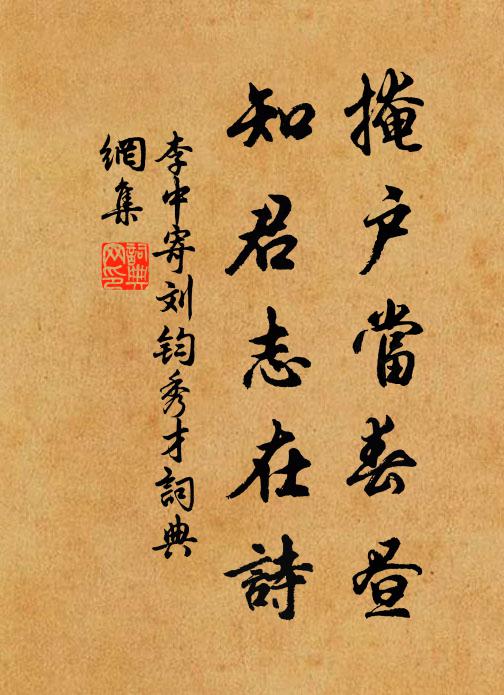 掩户當春昼
知君志在詩
李中寄刘鈞秀才詞典
網集
詞典
网印